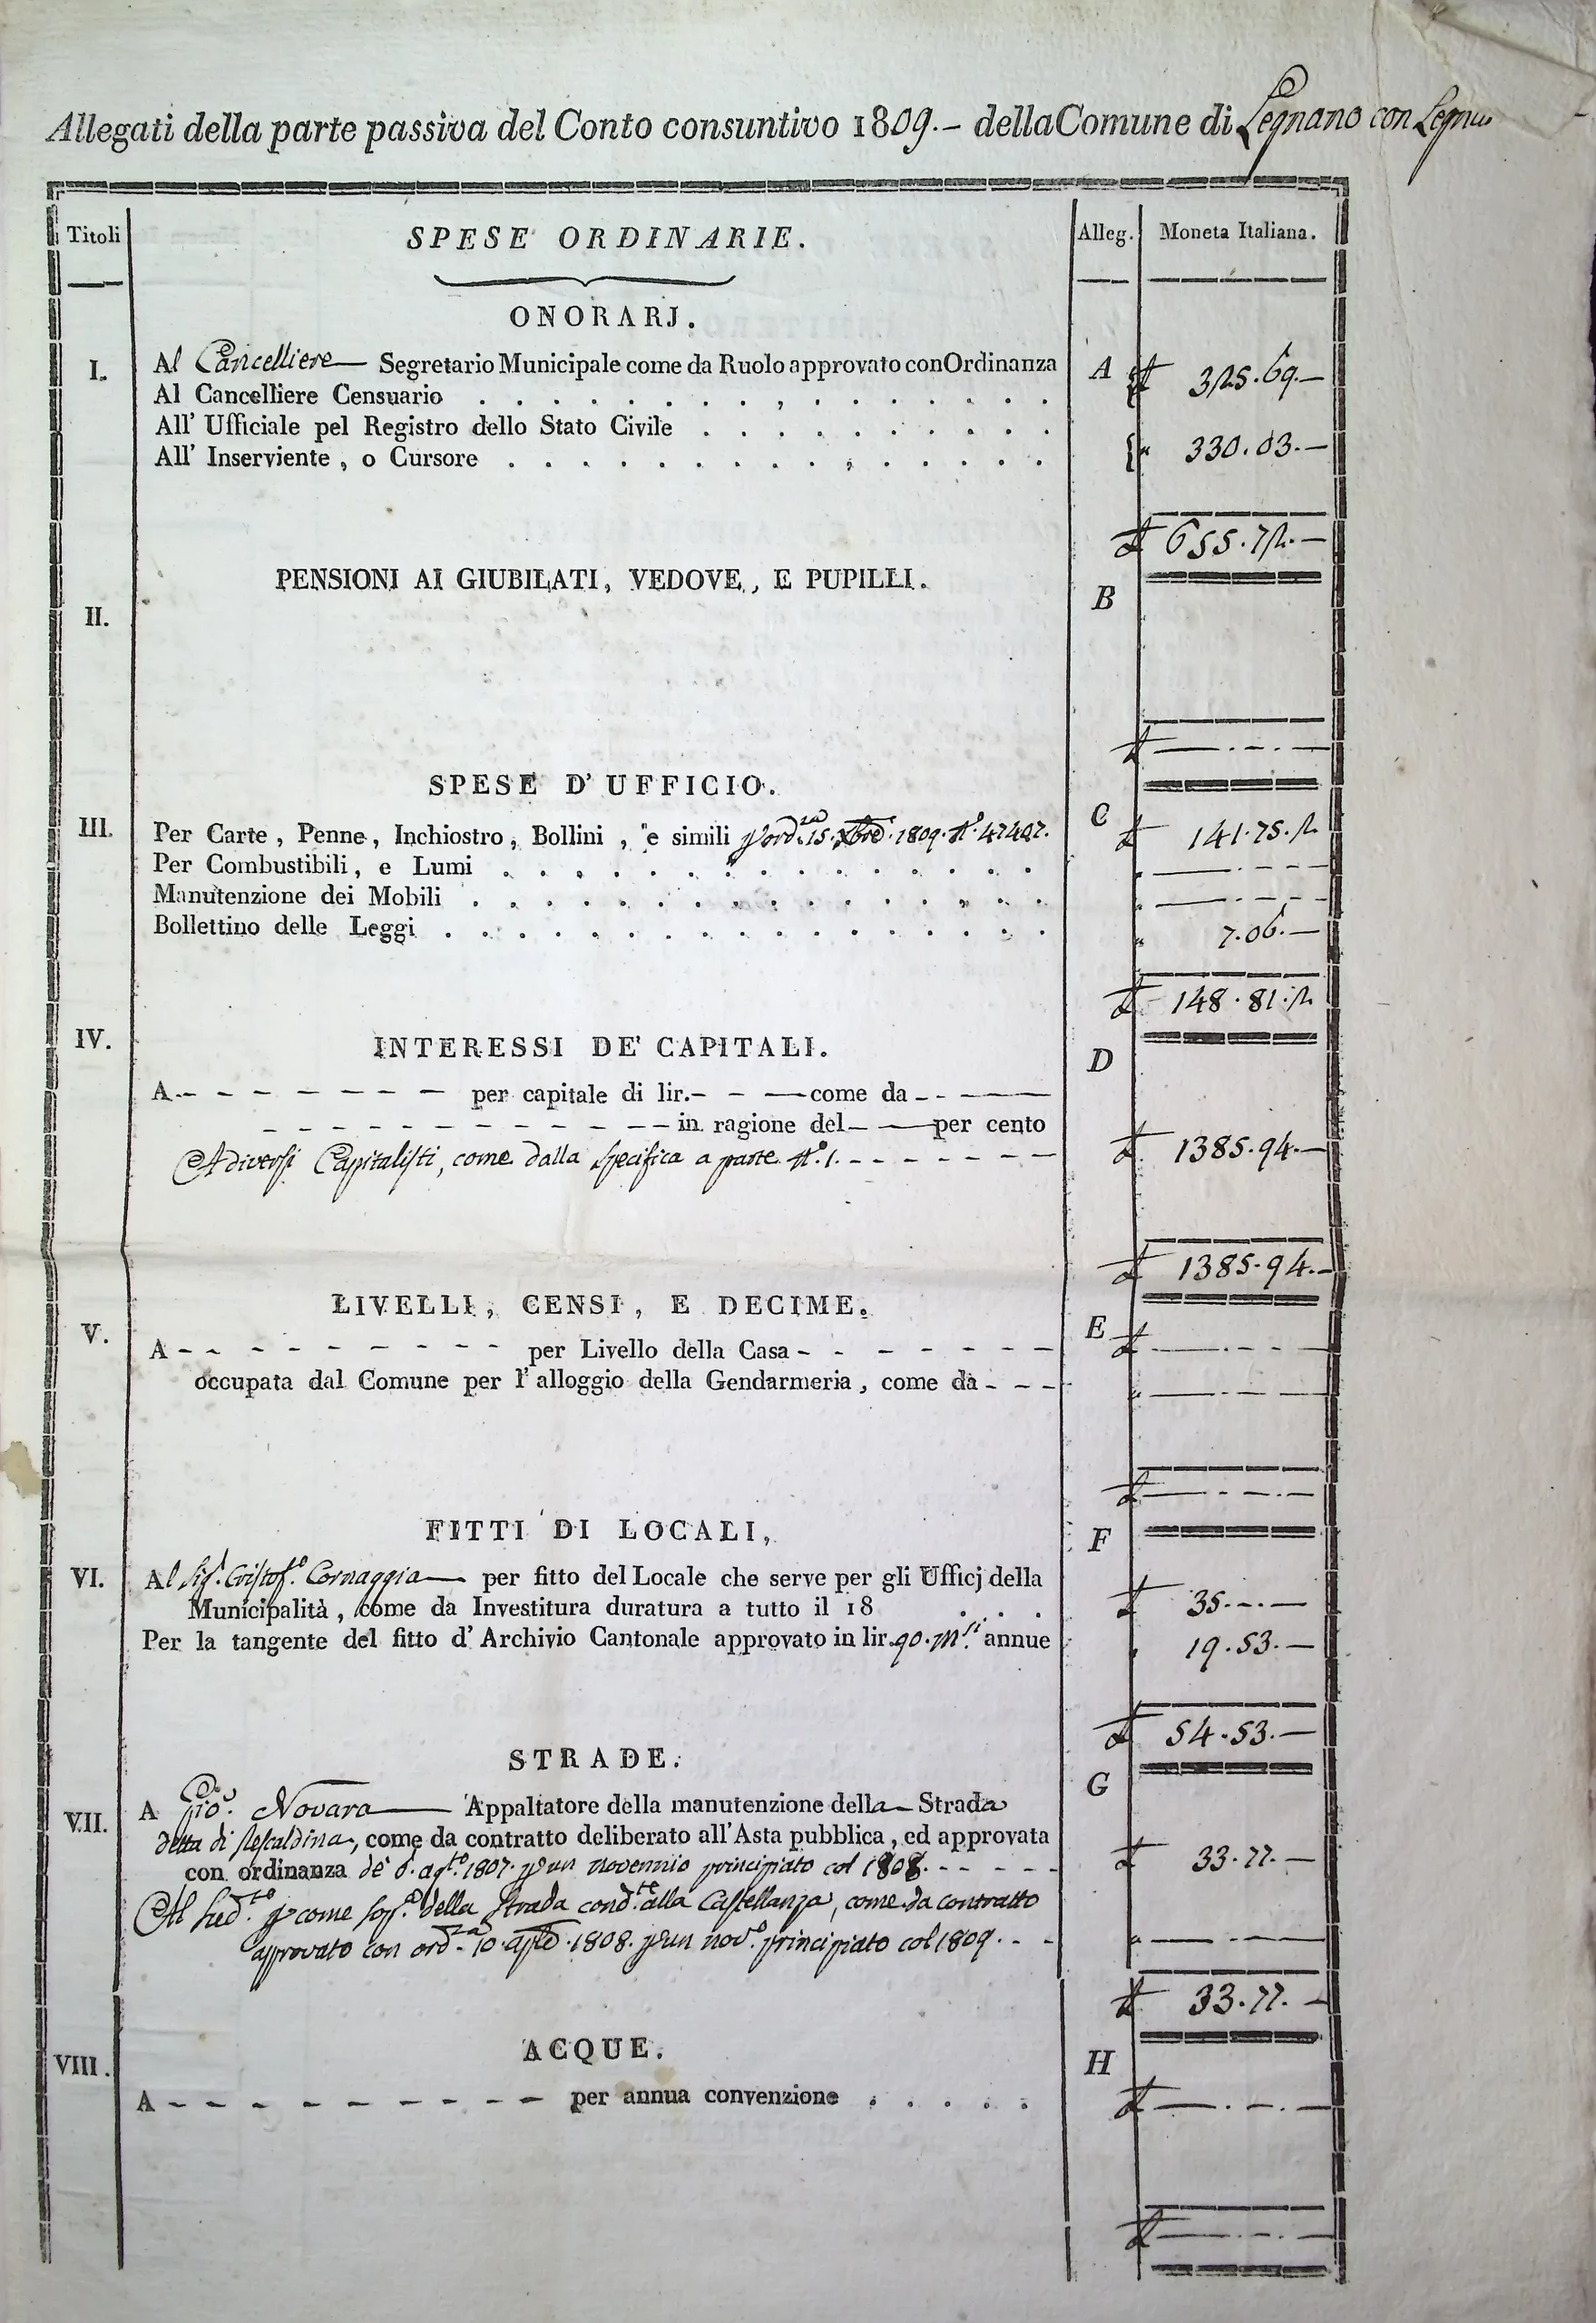 Allegati della parte passiva del Conto consuntivo 1809.- della Comune di Legnano con
Titoli SPESE ORDINARIE. Alleg. Moneta Italiana.
ONORARJ.
I. Al Cancelliere— Segretario Municipale come da Ruolo approvato con Ordinanza A £ 325.69.—
Al Cancelliere Censuario
All' Ufficiale pel Registro dello Stato Civile
All' Inserviente, o Cursore " 330.03.—
£ 655.72.—
PENSIONI AI GIUBILATI, VEDOVE, E PUPILLI. B
II.
£ —.-.—
SPESE D' UFFICIO. C
III. Per Carte, Penne, Inchiostro, Bollini, e simili p ord.za 15. Xbre. 1809. N.° 47407. £ 141.75.2
Per Combustibili, e Lumi " —.-.—
Manutenzione dei Mobili " —.-.—
Bollettino delle Leggi " 7.06.—
£ 148.81.2
IV. INTERESSI DE' CAPITALI. D
A - - - per capitale di lir. - - — come da - - —
- - - in ragione del - — per cento
A diversi Capitalisti, come dalla specifica a parte N.° 1. - - - £ 1385.94.—
£ 1385.94.-
LIVELLI, CENSI, E DECIME. E
V. A - - - per Livello della Casa - - - £ —.-.—
occupata dal Comune per l' alloggio della Gendarmeria, come da - - - " —.-.—
£ —.-.—
FITTI DI LOCALI, F
VI. Al Sig.r Cristof.o Cornaggia— per fitto del Locale che serve per gli Ufficj della
Municipalità, come da Investitura duratura a tutto il 18 £ 35.-.—
Per la tangente del fitto d' Archivio Cantonale approvato in lir. 90. annue " 19.53.—
£ 54.53.—
STRADE. G
VII. A Gio. Novara — Appaltatore della manutenzione della - Strada
detta di Rescaldina, come da contratto deliberato all' Asta pubblica, ed approvata
con ordinanza de' 6. ag.to 1807. p un novennio principiato col 1808. - - - £ 33.77.—
Al Sud.to p come sop.a della Strada cond.te alla Castellanza, come da contratto
approvato con ord.za 10. 1808. p un nov.o principiato col 1809. - - " —.-.—
£ 33.77.—
ACQUE. H
VIII. A - - - per annua convenzione £ —.-.—
£ —.-.—